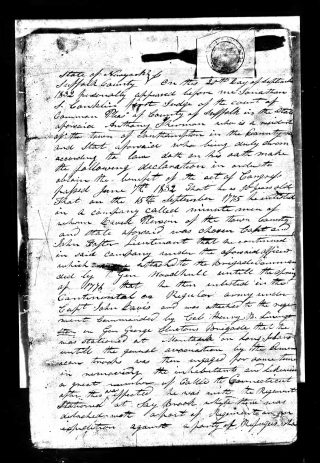 State of New york } ss
Suffolk County } On this 20th day of Septemb
1832 personally appeared before me Jonathan
S. Conklin first Judge of the court of
Common Pleas of County of Suffolk in the State
aforesaid Anthony who is a resident
of the town of Southampton in the County
and State aforesaid who being duly sworn
according to law doth on his oath make
the following declaration in order to
obtain the benefit of the act of Congress
passed June 7th 1832 That he is years old
That on the 15th September 1775 he enlisted
in a company called minute men of
whom David Pierson of the town County
and State aforesaid was chosen Capt and
John Foster Lieutenant that he continued
in said company under the aforesaid officers
which attached to the Brigade Comman
ded by Gen Woodhull untill the spring
of 1776 that he then enlisted in the
Continental or Regular army under
Capt John Davis and was attached to the regi
ment Commanded by Col Henry B. Livings
ton in Gen George Brigade that he
was stationed at Montauk on Long Island
untill the general evacuation by the Ameri
cans troops we then engaged for some time
in removing the inhabitants and likewise
a great number of Cattle to Connecticut
after this he was with the Regiment
Stationed at Say Brook while there was
detached with a part of Regiment on an
expedition against a party of Refugees who